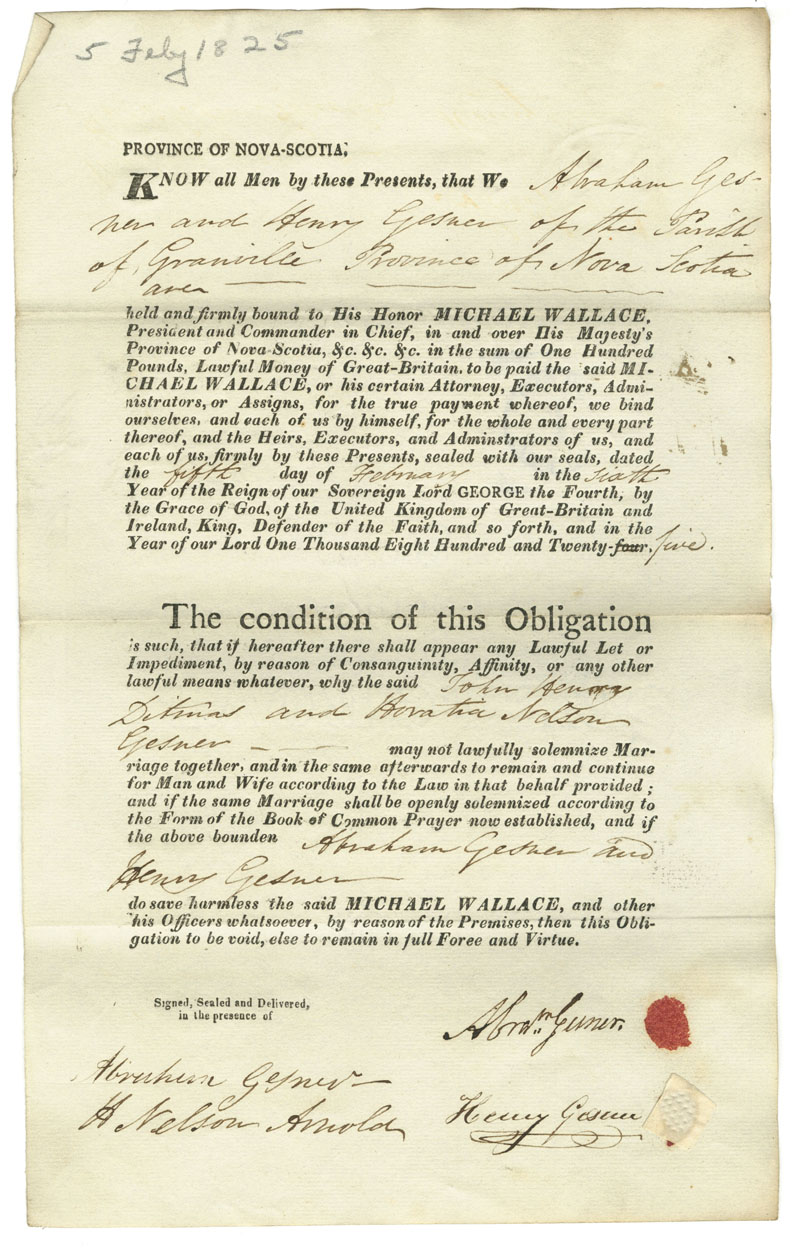 5 Feby 1825
PROVINCE OF NOVA-SCOTIA.
KNOW all Men by these Presents, that We Abraham Ges-
ner and Henry Gesner of the Parish
of Granville Province of Nova Scotia
are
held and firmly bound to His Honor MICHAEL WALLACE,
President and Commander in Chief, in and over His Majesty's
Province of Nova-Scotia, &c. &c. &c. in the sum of One Hundred
Pounds, Lawful Money of Great-Britain, to be paid the said MI-
CHAEL WALLACE, or his certain Attorney, Executors, Admi-
nistrators, or Assigns, for the true payment whereof, we bind
ourselves, and each of us by himself, for the whole and every part
thereof, and the Heirs, Executors, and Adminstrators of us, and
each of us, firmly by these Presents, sealed with our seals, dated
the fifth day of February in the sixth
Year of the Reign of our Sovereign Lord GEORGE the Fourth, by
the Grace of God, of the United Kingdom of Great-Britain and
Ireland, King, Defender of the Faith, and so forth, and in the
Year of our Lord One Thousand Eight Hundred and Twenty-four. five.
The condition of this Obligation
is such, that if hereafter there shall appear any Lawful Let or
Impediment, by reason of Consanguinity, Affinity, or any other
lawful means whatever, why the said John Henry
Ditmas and Horatia Nelson
Gesner may not lawfully solemnize Mar-
riage together, and in the same afterwards to remain and continue
for Man and Wife according to the Law in that behalf provided;
and if the same Marriage shall be openly solemnized according to
the Form of the Book of Common Prayer now established, and if
the above bounden Abraham Gesner and
Henry Gesner
do save harmless the said MICHAEL WALLACE, and other
his Officers whatsoever, by reason of the Premises, then this Obli-
gation to be void, else to remain in full Foree and Virtue.
Signed, Sealed and Delivered,
in the presence of
Abram Gesner.
Abraham Gesner
H Nelson Arnold
Henry Gesner